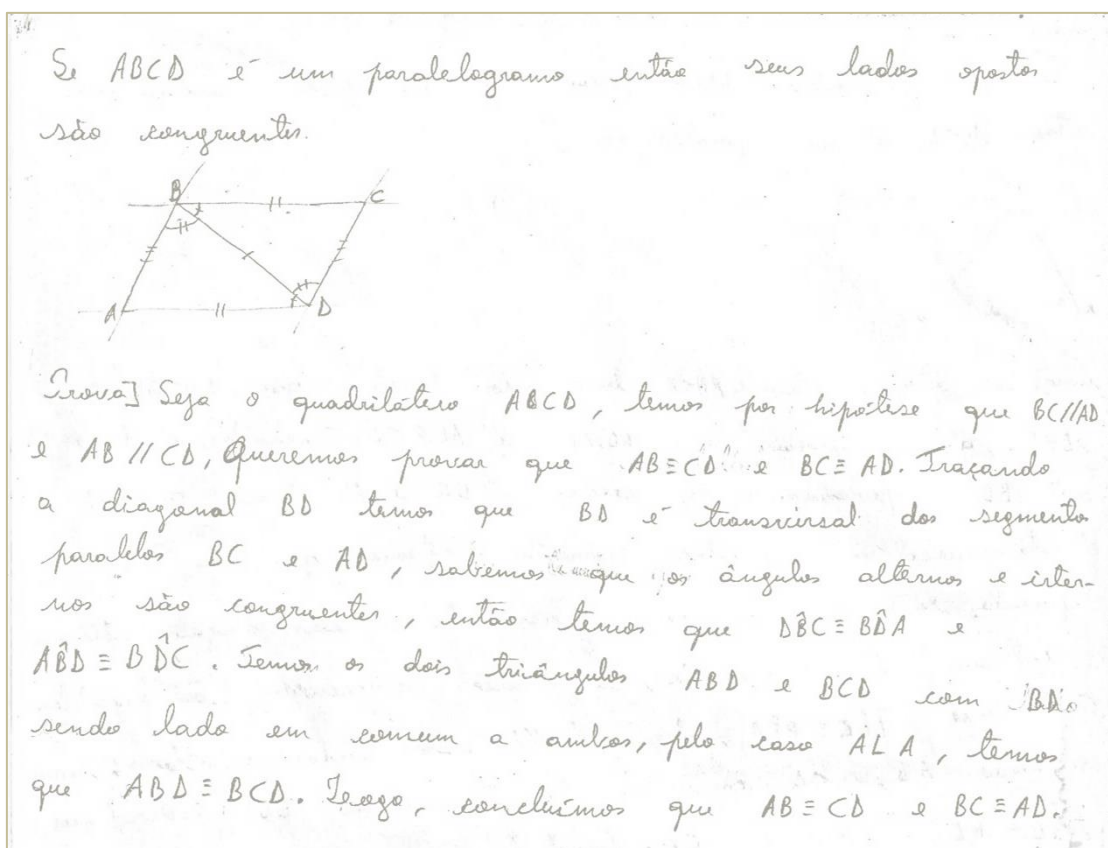 Se ABCD é um paralelogramo então seus lados opostos
são congruentes.
B
C
A
D
Prova] Seja o quadrilátero ABCD, temos por hipótese que BC//AD
e AB//CD, Queremos provar que AB≡CD e BC≡AD. Traçando
a diagonal BD temos que BD é transversal dos segmentos
paralelos BC e AD, sabemos que os ângulos alternos e inter-
nos são congruentes, então temos que DB̂C≡BD̂A e
AB̂D≡BD̂C. Temos os dois triângulos ABD e BCD com BD
sendo lado em comum a ambos, pelo caso ALA, temos
que ABD≡BCD. Logo, concluímos que AB≡CD e BC≡AD.